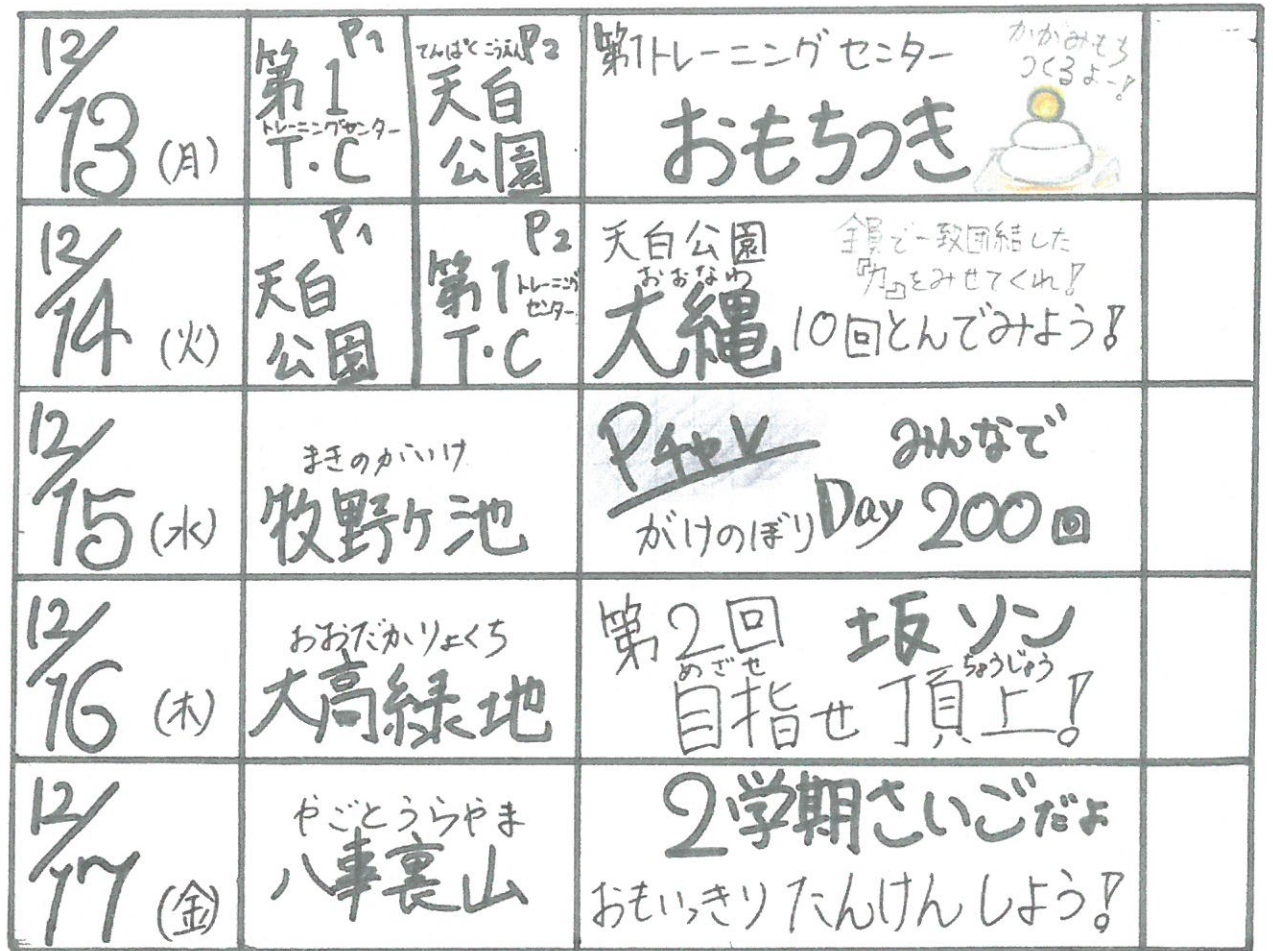 12/13(月)
P1
第1
トレーニングセンター
T・C
てんぱくこうえん P2
天白
公園
第1トレーニングセンター
おもちつき
かがみもち
つくるよー!
12/14(火)
P1
天白
公園
P2
第1トレーニングセンター
T・C
天白公園
おおなわ
大縄 10回とんでみよう!
全員で一致団結した
『力』をみせてくれ!
12/15(水)
まきのがいけ
牧野ヶ池
Pチャレ みんなで
がけのぼりDay 200回
12/16(木)
おおだかりょくち
大高緑地
第2回 坂ソン
めざせ ちょうじょう
目指せ 頂上!
12/17(金)
やごとうらやま
八事裏山
2学期さいごだよ
おもいっきりたんけんしよう!